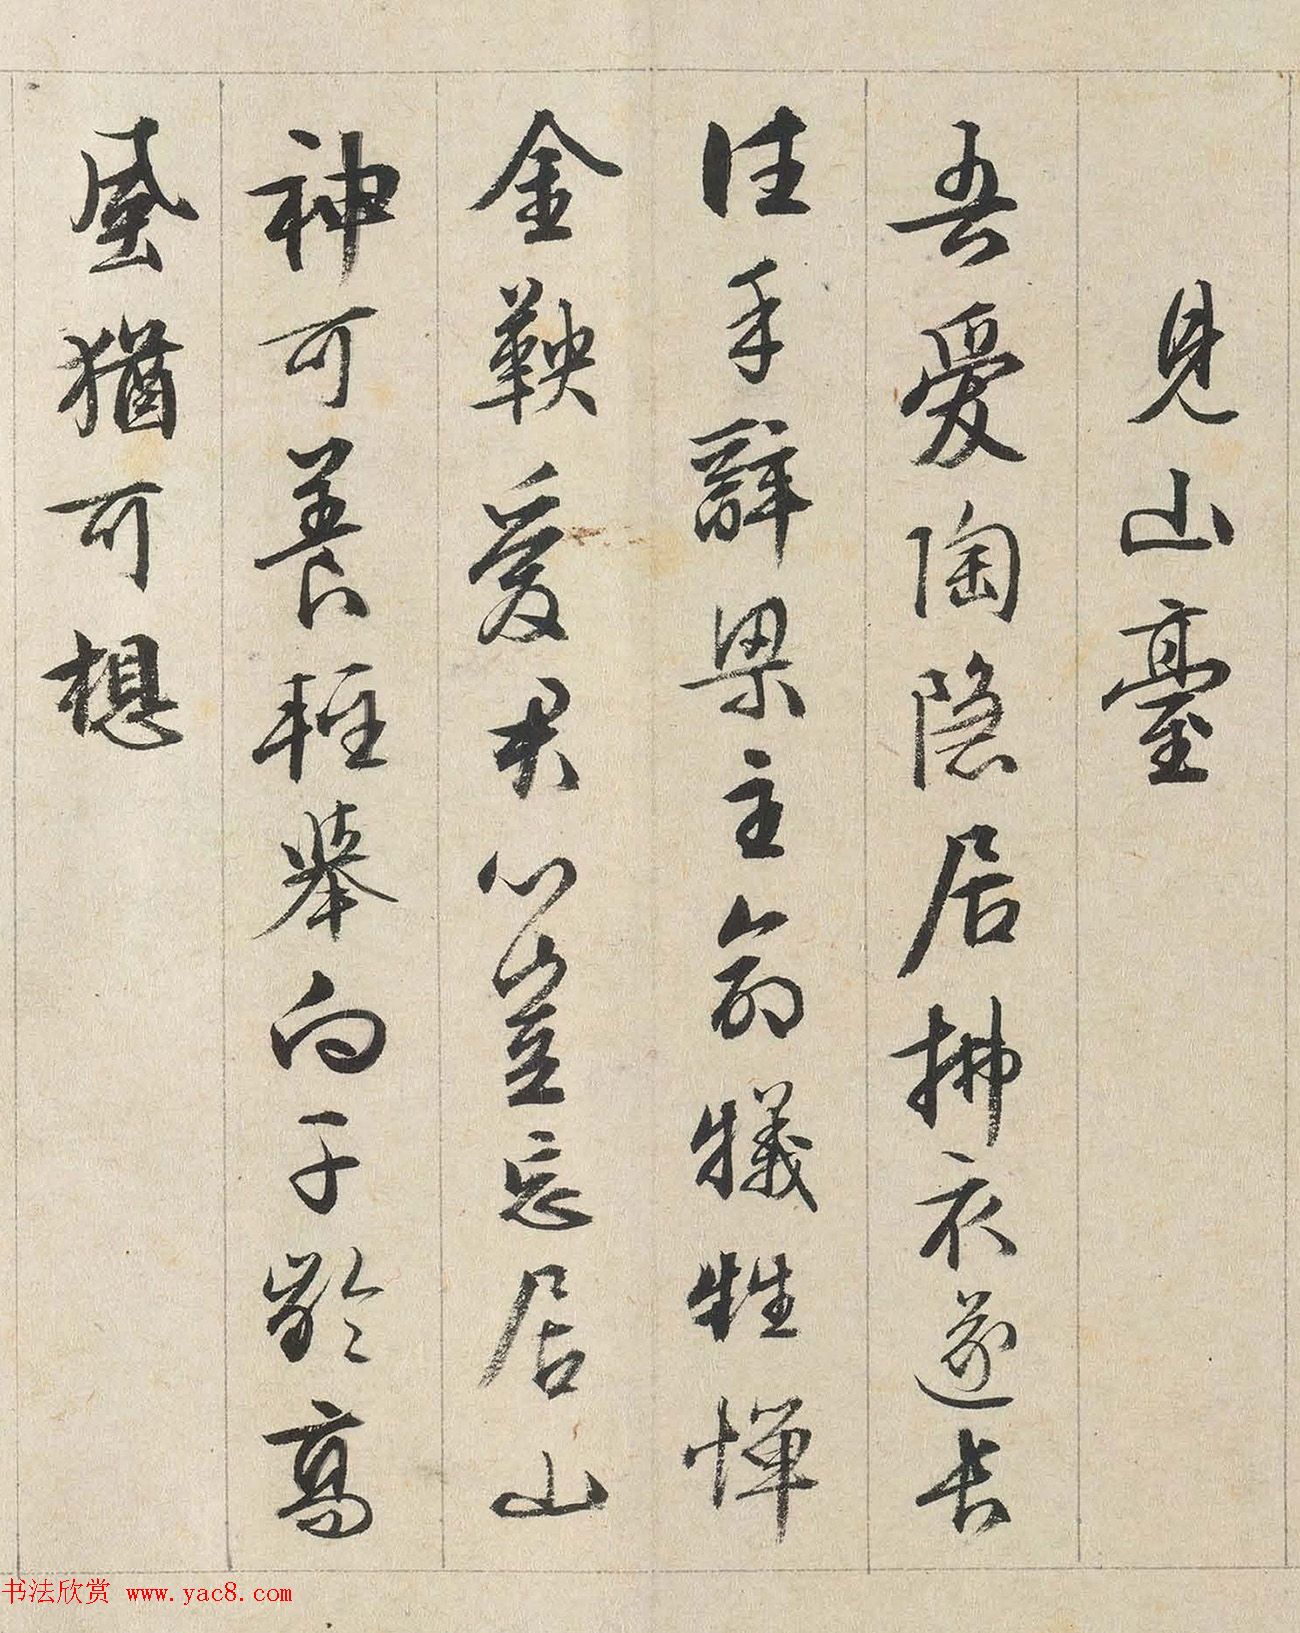 見山臺
吾愛陶隱居拂衣遂長
往手辭梁主命犧牲憚
金鞅愛君心豈忘居山
神可養輕舉向千齡高
風猶可想
书法欣赏 www.yac8.com